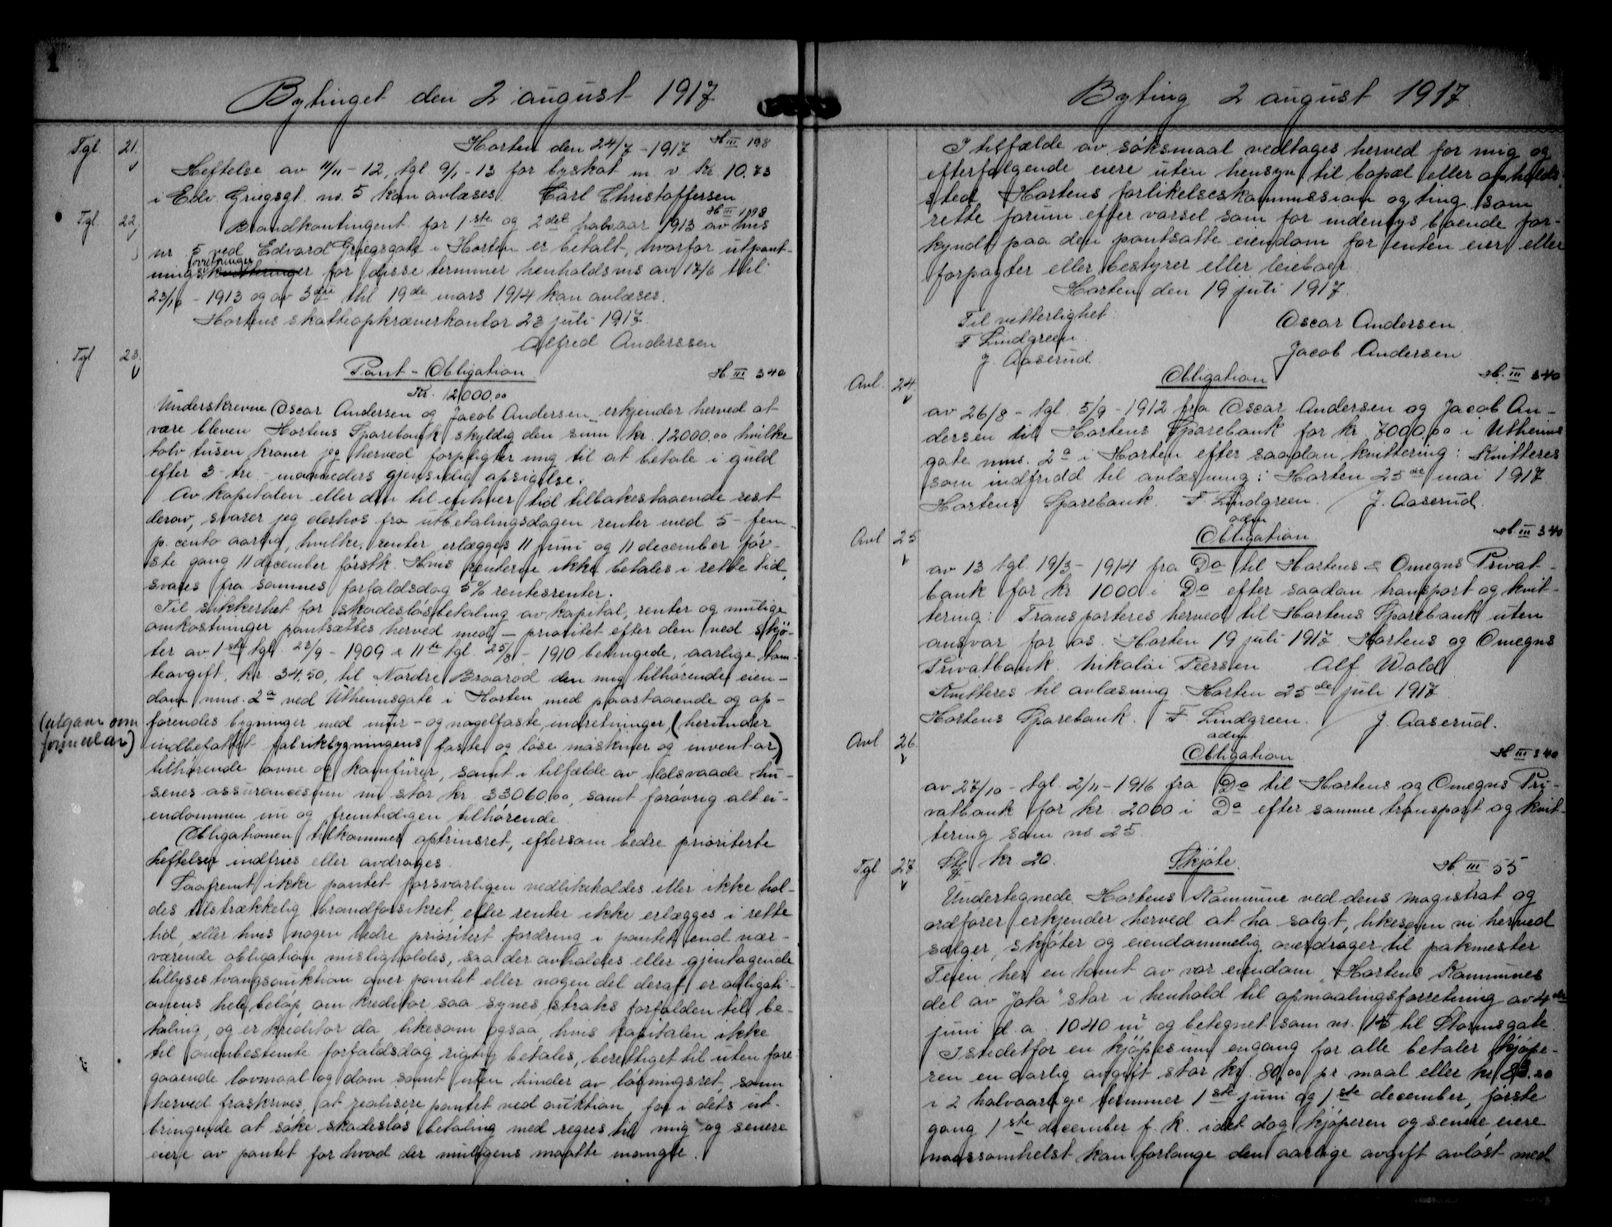 1
Bytinget den 2 august 1917
Tgl 21. Horten den 24/7 - 1917 H III 198
Heftelse av 4/11 - 12, tgl 9/1 - 13 for byskat m. v. kr. 10.73
i Edv. Griegsgt. no. 5 kan avlæses Carl Christoffersen
Tgl 22. H III 198
Brandkontingent for 1ste og 2det halvaar 1913 av hus
nr 5 ved Edvard Griegsgate i Horten er betalt, hvorfor utpant-
nings forretninger for disse terminer henholdsvis av 17/6 thl
23/10 - 1913 og av 3die thl 19de mars 1914 kan avlæses.
Hortens skatteopkræverkontor 23 juli 1917.
Alfred Anderssen
Tgl 23. Pant-Obligation H III 340
Kr. 12000.00
Underskrevne Oscar Andersen og Jacob Andersen erkjender herved at
være bleven Hortens Sparebank skyldig den sum kr. 12000.00 hvilke
tolv tusen kroner jeg herved forpligter mig til at betale i guld
efter 3 - tre - maaneders gjensidig opsigelse.
Av kapitalen eller den til enhver tid tilbakestaaende rest
derav, svarer jeg derhos fra utbetalingsdagen renter med 5 - fem
p. cento aarlig, hvilke renter erlægges 11 juni og 11 december før-
ste gang 11 december førstk. Hvis renterne ikke betales i rette tid,
svares fra sammes forfaldsdag 5% rentesrenter.
Til sikkerhet for skadesløs betaling av kapital, renter og mulige
omkostninger pantsættes herved med - prioritet efter den ved skjø-
ter av 1ste tgl 23/9 - 1909 & 11te tgl 25/8 - 1910 betingede, aarlige tom-
teavgift, kr. 34.50, til Nordre Braarød den mig tilhørende eien-
dom mns. 2a ved Utheimsgate i Horten med paastaaende og op-
(utgaar om formular)
førendes bygninger med mur- og nagelfaste indretninger, (herunder
indbefattet fabrikbygningens faste og løse maskiner og inventar)
tilhørende ovne og komfürer, samt i tilfælde av ildsvaade hu-
senes assurancesum nu stor kr. 33060.00, samt forøvrig alt ei-
endommen nu og fremtidigen tilhørende.
Obligationen tilkommer optrinsret, eftersom bedre prioriterte
heftelser indfries eller avdrages.
Saafremt ikke pantet forsvarligen vedlikeholdes eller ikke hol-
des tilstrækkelig brandforsikret, eller renter ikke erlægges i rette
tid, eller hvis nogen bedre prioritert fordring i pantet end nær-
værende obligation misligholdes, saa der avholdes eller gjentagende
tillyses tvangsauktion over pantet eller nogen del derav, er obligati-
onens hele beløp, om kreditor saa synes straks forfalden til be-
taling, og er kreditor da, likesom ogsaa hvis kapitalen ikke
til ovenbestemte forfaldsdag rigtig betales, berettiget til uten fore-
gaaende lovmaal og dom samt uten hinder av løsningsret, som
herved fraskrives, at realisere pantet ved auktion, for i dets ut-
bringende at søke skadesløs betaling med regres til mig og senere
eiere av pantet for hvad der muligens maatte mangle.
Byting 2 august 1917.
I tilfælde av søksmaal vedtages herved for mig og
efterfølgende eiere uten hensyn til bopæl eller opholds-
sted Hortens forlikelseskommission og ting som
rette forum efter varsel som for indenbys boende for-
kyndt paa den pantsatte eiendom for enten eier eller
forpagter eller bestyrer eller leieboer.
Horten, den 19 juli 1917.
Til vitterlighet Oscar Andersen.
F Lindgreen
J. Aaserud Jacob Andersen
Avl. 24 Obligation H. III 340
av 26/8 - tgl 5/9 - 1912 fra Oscar Andersen og Jacob An-
dersen til Hortens Sparebank for kr 7000.00 i Utheims
gate mns. 2a i Horten efter saadan kvittering: Kvitteres
som indfridd til avlæsning: Horten 25de mai 1917
Hortens Sparebank. F Lindgreen / J. Aaserud.
adm
Avl 25 Obligation H III 340
av 13 tgl. 19/3 - 1914 fra Do til Hortens & Omegns Privat-
bank for kr 1000 i Do efter saadan transport og kvit-
tering: Transporteres herved til Hortens Sparebank uten
ansvar for os. Horten 19 juli 1917 Hortens og Omegns
Privatbank. Nikolai Peersen Alf Wold
Kvitteres til avlæsning Horten 25de juli 1917.
Hortens Sparebank. F Lindgreen. / J. Aaserud.
adm
Avl 26 Obligation H III 340
av 27/10 - tgl 2/11 - 1916 fra Do til Hortens og Omegns Pri-
vatbank for kr. 2000 i Do efter samme transport og kvit-
tering som no 25.
Tgl 27 kr 20. Skjøte. H III 55
Undertegnede Hortens Kommune ved dens magistrat og
ordfører erkjender herved at ha solgt, likesom vi herved
sælger, skjøter og eiendommelig overdrager til pakmester
Teien her en tomt av vor eiendom, "Hortens Kommunes
del av Jota" stor i henhold til opmaalingsforretning av
juni d. a. 1040 m² og betegnet som no. 15 til Stormsgate.
Istedetfor en kjøpesum engang for alle betaler kjøpe-
ren en aarlig avgift stor kr. 80.00 pr. maal eller kr 83.20
i 2 halvaarlige terminer 1ste juni og 1ste december, første
gang 1ste december f. k. idet dog kjøperen og senere eiere
naarsomhelst kan forlange den aarlige avgift avløst med